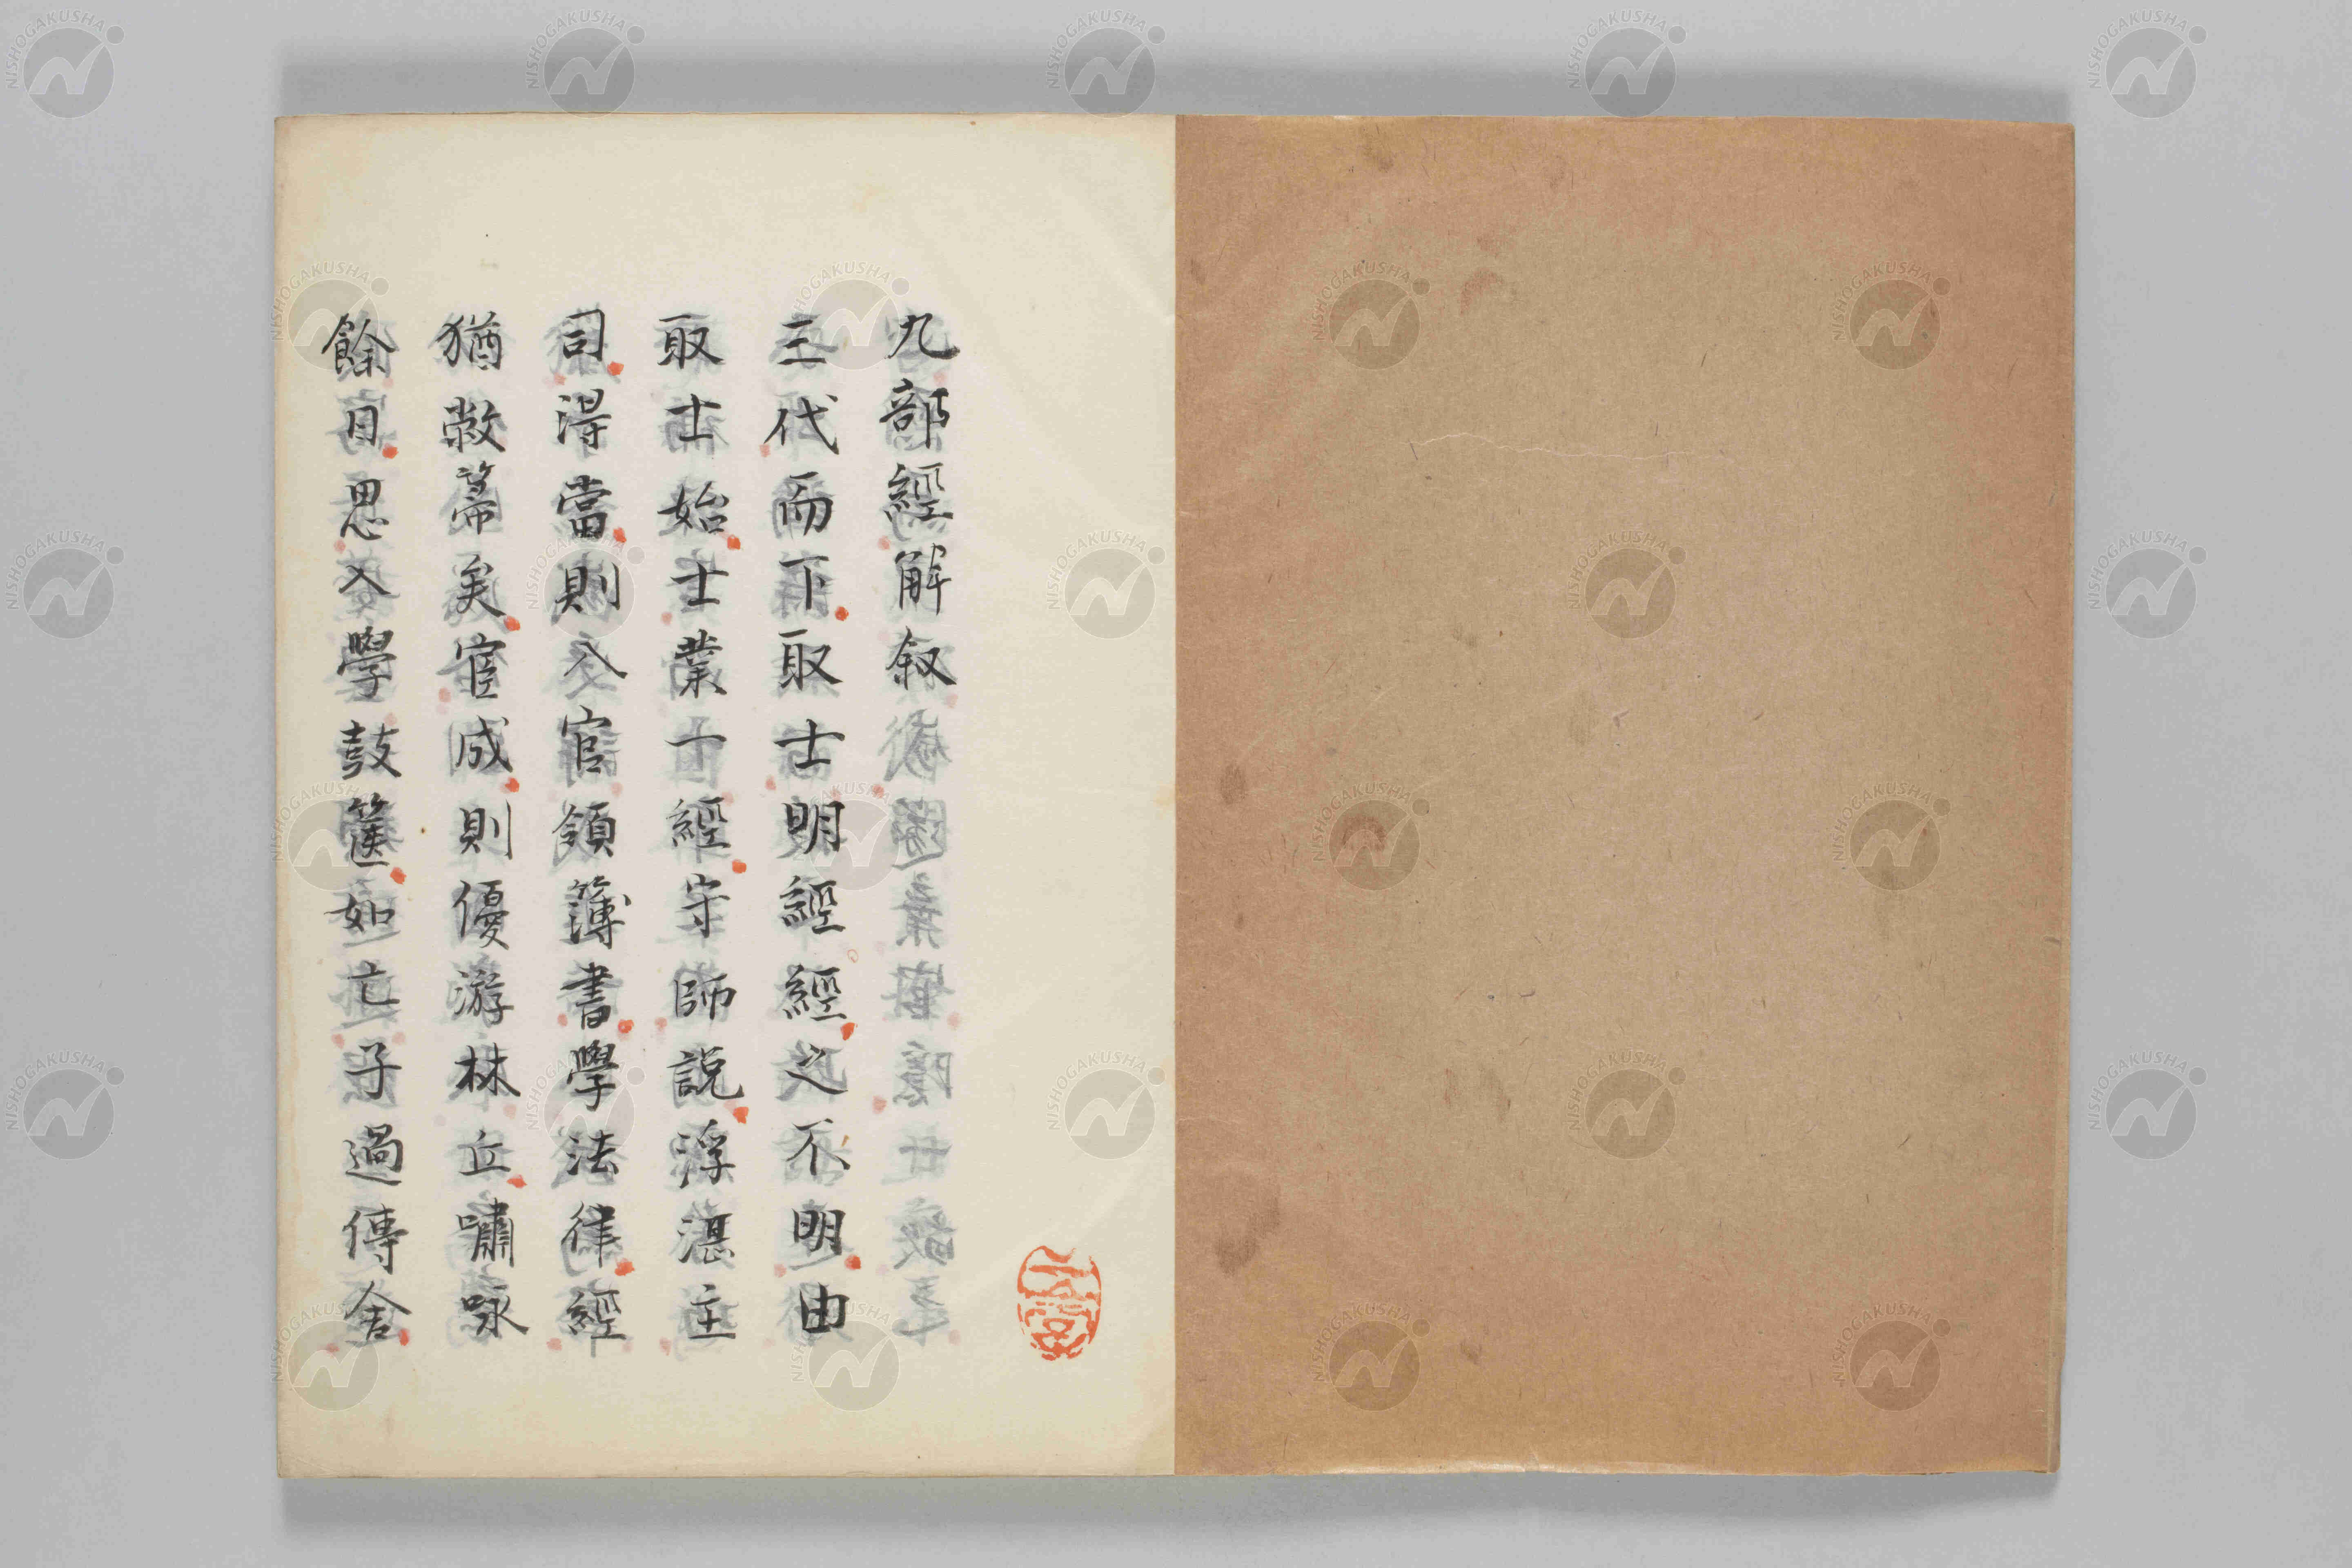 九部經解叙
三代而下取士明經經之不明由
取士始士業一經守師説浮湛主
司得當則入官領簿書學法律經
猶敝帚矣宦成則優游林丘嘯咏
餘日思入學鼓篋如亡子過傳舍
NISHOGAKUSHA